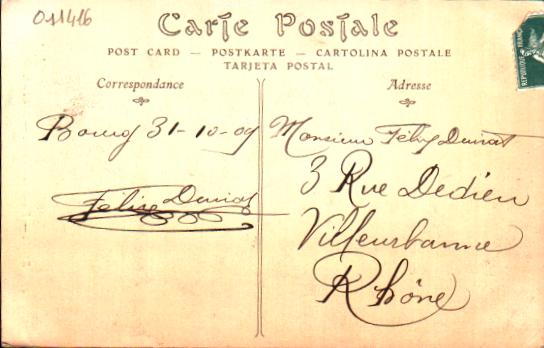 011416
Carte Postale
POST CARD — POSTKARTE — CARTOLINA POSTALE
TARJETA POSTAL
Correspondance
Adresse
REPUBLIQUE FRANC
Bourg 31-10-09
Félix
Monsieur Félix
3 Rue Dedieu
Villeurbanne
Rhône